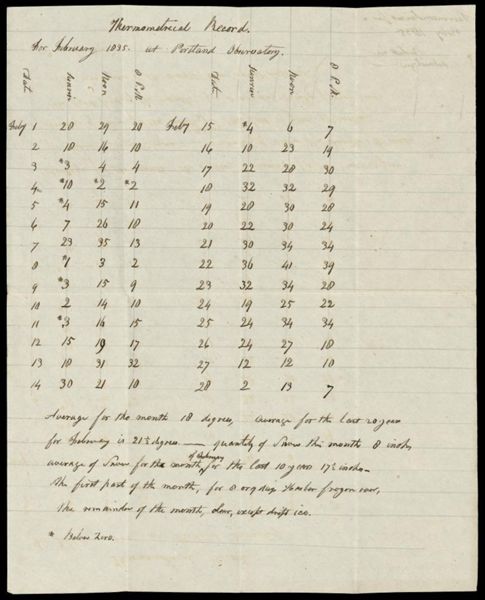 Thermometrical Record.
For February 1835. at Portland Observatory.
Date Sunrise Noon 8 P.M. Date Sunrise Noon 8 P.M.
Feby 1 28 29 20 Feby 15 *4 6 7
2 18 16 10 16 10 23 19
3 *3 4 4 17 22 28 30
4 *10 *2 *2 18 32 32 29
5 *4 15 11 19 28 30 28
6 7 26 18 20 22 30 24
7 23 35 13 21 30 34 34
8 *1 3 2 22 36 41 39
9 *3 15 9 23 32 34 28
10 2 14 10 24 19 25 22
11 *3 16 15 25 24 34 34
12 15 19 17 26 24 27 18
13 18 31 32 27 12 12 10
14 30 21 10 28 2 13 7
Average for the month 18 degrees, average for the last 20 years
for February is 21½ degrees. — quantity of Snow this month 8 inches,
average of Snow for the month, of February for the last 10 years 17½ inches—
the first part of the month, for 8 or 9 days Harbor frozen over,
the remainder of the month, clear, except drift ice.
* Below Zero.